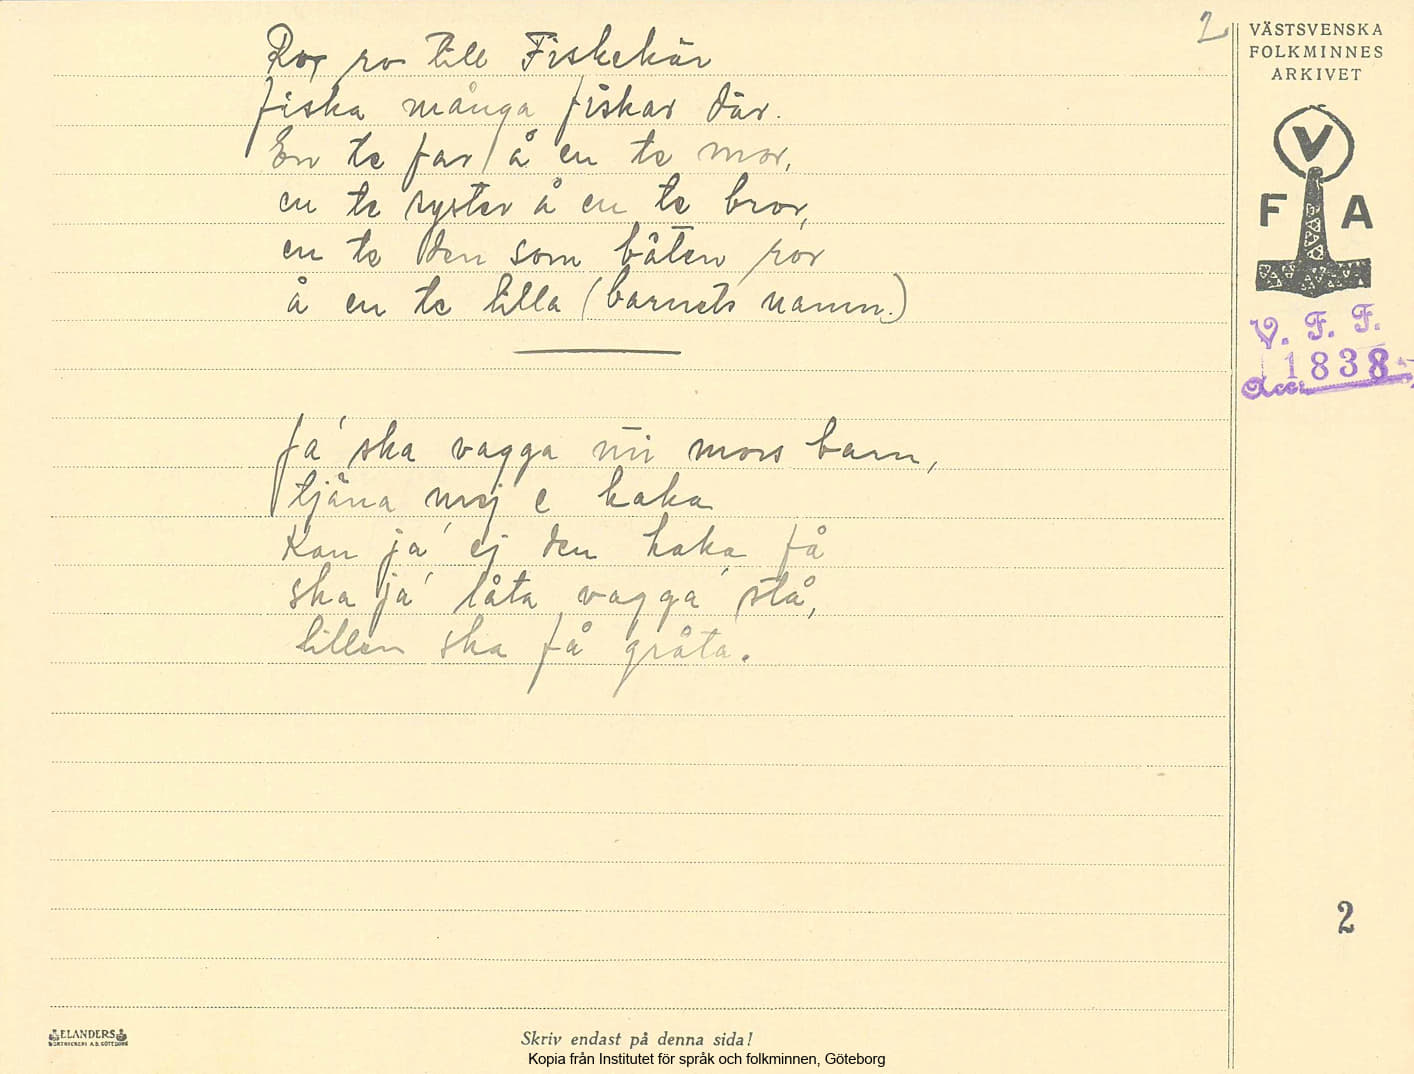 2
Ro, ro till Fiskekär
fiska många fiskar där.
En te far å en te mor,
en te syster å en te bror,
en te den som båten ror
å en te lilla (barnets namn.)
Ja' ska vagga mi mors barn,
tjäna mej e kaka
Kan ja' ej den kaka få
ska ja' låta vagga' stå,
lillen ska få gråta.
VÄSTSVENSKA
FOLKMINNES
ARKIVET
V
F A
V. F. F.
1838
Acc.
2
ELANDERS
BOKTRYCKERI A.B. GÖTEBORG
Skriv endast på denna sida!
Kopia från Institutet för språk och folkminnen, Göteborg